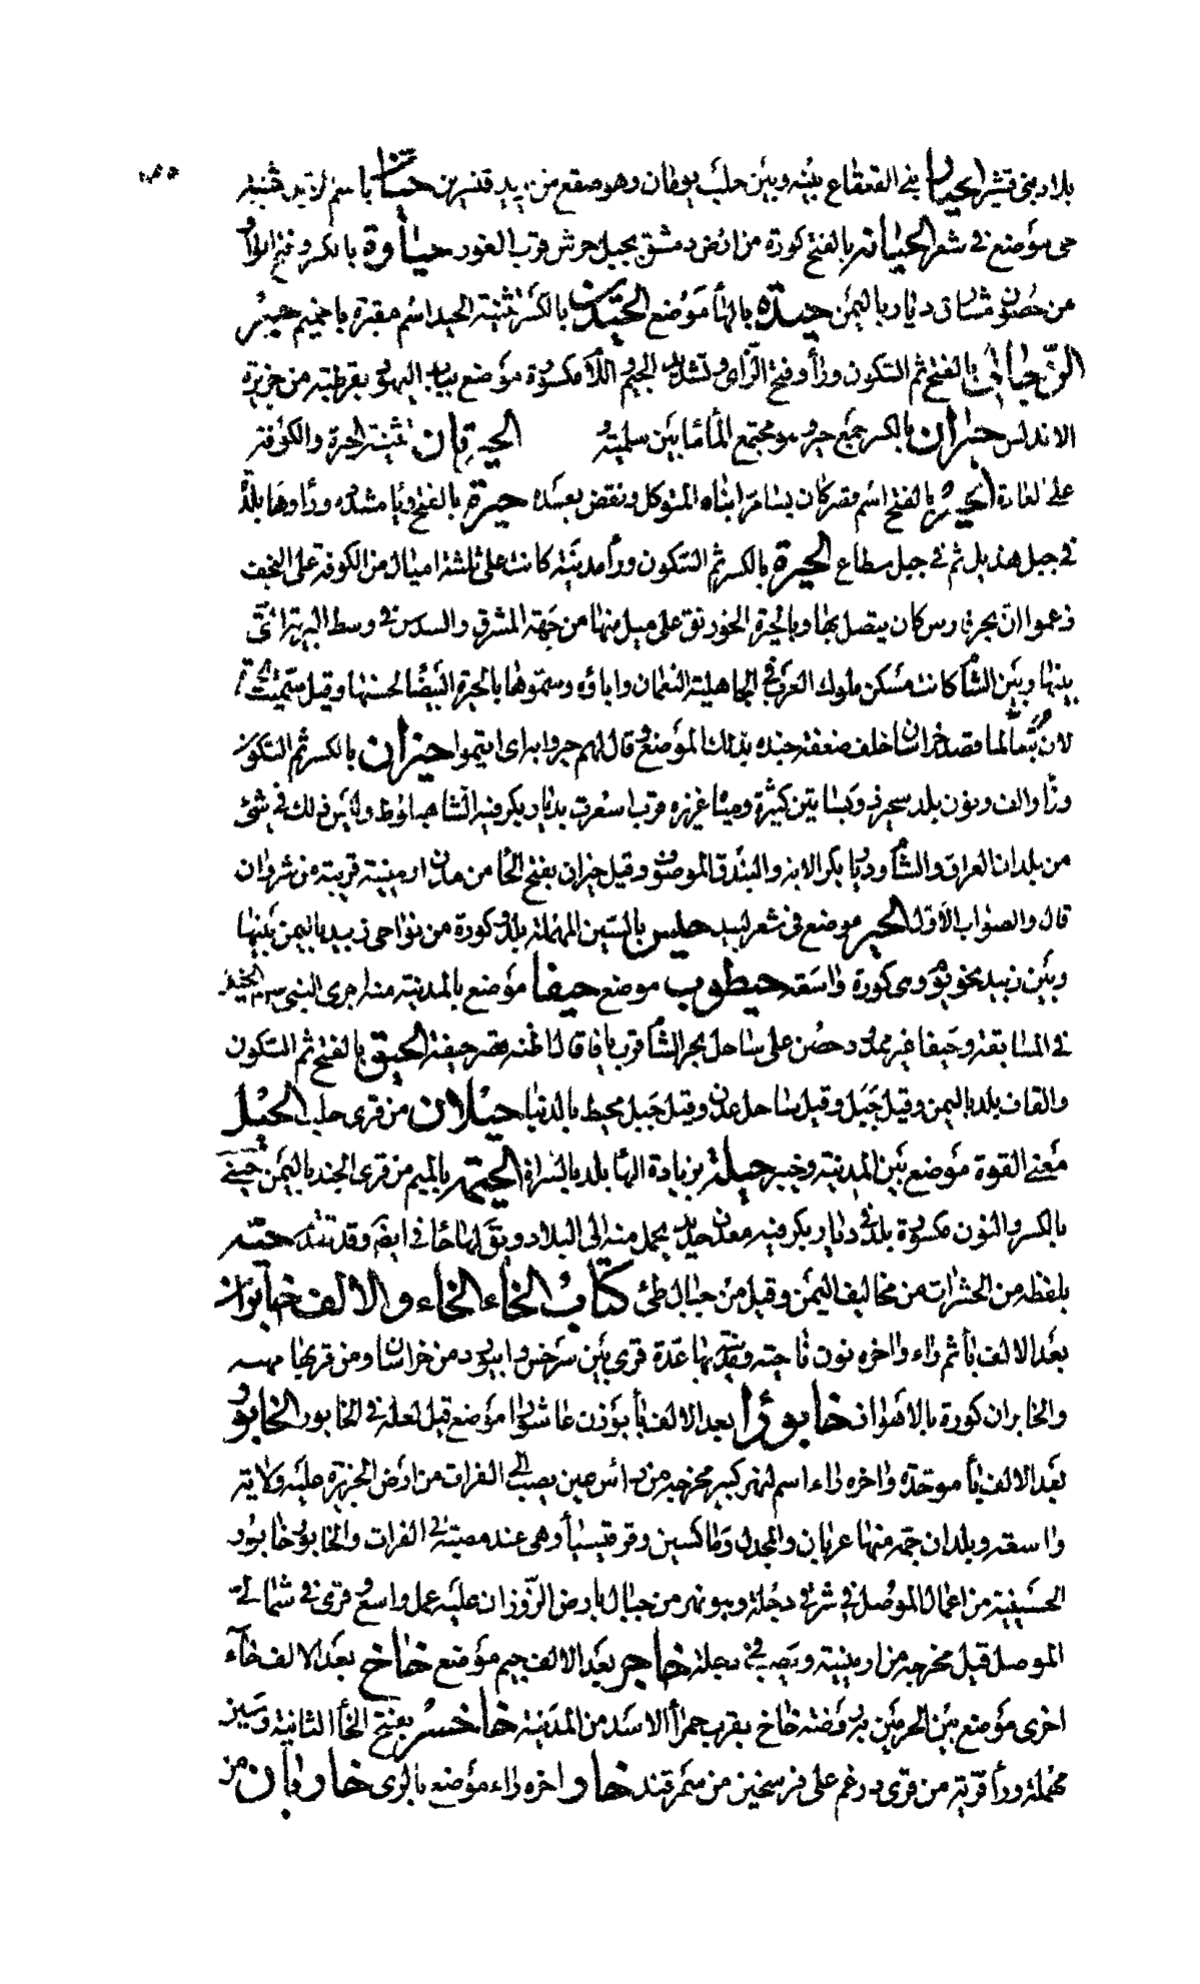 بلاد بنى قشير الحيار بنى القعقاع بينه وبين حلب يومان وهو صقع من قنسرين باسم
موضع فى شعر الحيانه بالفتح كورة من ارض دمشق بجبل جرش قرب الغور حياوة بالكسر وفتح الواو
من حصون مشارق ديار باليمن حيدة بالهاء موضع الحيدين بالكسر تثنية الحيد اسم مقبرة باخميم حيز
الزجالى بالفتح ثم السكون وراء وفتح الزاى وتشديد الجيم واللام مكسورة موضع بباب اليهود بقرطبة من جزيرة
الاندلس حيران بالكسر جمع حير وهو مجتمع الماء ما بين سلمية و الحيرتان تثنية الحيرة والكوفة
على العادة الحير بالفتح اسم قصر كان بسامرا بناه المتوكل ونقض بعده حيرة بالفتح ويا مشدده وراء وها بلد
فى جبل هذيل ثم فى جبل سطاع الحيرة بالكسر ثم السكون وراء مدينة كانت على ثلثة اميال من الكوفة على النجف
زعموا ان بحر فارس كان يتصل بها وبالحيرة الخورنق على ميل منها من جهة المشرق والسدير فى وسط البرية التى
بينها وبين الشام كانت مسكن ملوك العرب فى الجاهلية النعمان واباؤه وسموها بالحيرة البيضاء لحسنها وقيل سميت الحيرة
لان تبعا لما قصد خراسان خلف ضعفة جنده بذلك الموضع وقال لهم حيروا به اى اقيموا حيزان بالكسر ثم السكون
وزاء والف ونون بلد فيه شجر وبساتين كثيرة ومياه غزيرة قرب اسعرت بديار بكر فيه الشاهبلوط وليس ذلك فى شئ
من بلدان العراق والشام وديار بكر الا به والبندق الموصوف وقيل حيزان بفتح الحاء من مدن ارمينية قريبة من شروان
قال والصواب الاول الحيز موضع فى شعر لبيد حيس بالسين المهملة بلد وكورة من نواحى زبيد باليمن بينها
وبين زبيد نحو يوم وهى كورة واسعة حيطوب موضع حيفا موضع بالمدينة منه اجرى النبى الخيل
فى المسابقة وحيفا غير ممدود حصن على ساحل بحر الشام قرب يافا قال اظنه قصر حيفة الحيق بالفتح ثم السكون
والقاف بلد باليمن وقيل جبل وقيل ساحل عدن وقيل جبل محيط بالدنيا حيلان من قرى حلب الحيل
معنى القوة موضع بين المدينة وخيبر حيلة بزيادة الهاء بلد بالسراة الحيمه بالميم من قرى الجند باليمن حينى
بالكسر والنون مكسورة بلد فى ديار بكر فيه معدن حديد يحمل منه الى البلاد ويقال لها حانى ايضا وقد تقدم حيه
بلفظه من الحشرات من مخاليف اليمن وقيل من جبال طئ كتاب الخاء الخاء والالف خابران
بعد الالف باء ثم راء واخره نون ناحية ومدينة بها عدة قرى بين سرخس وابيورد من خراسان ومن قريها ميهنه
والخابران كورة بالاهواز خابورا بعد الالف باء بوزن عاشورا موضع قيل لعله فى الخابور الخابور
بعد الالف باء موحدة واخره راء اسم لنهر كبير مخرجه من راس عين يصب الى الفرات من ارض الجزيرة عليه ولاية
واسعة وبلدان جمة منها عربان والمجدل وماكسين وقرقيسياء وهى عند مصبه فى الفرات والخابور خابور
الحسينية من اعمال الموصل فى شرقى دجلة وهو نهر من جبال بارض الزوزان عليه عمل واسع وقرى فى شمالى
الموصل قيل مخرجه من ارمينية ويصب فى دجلة خاجر بعد الالف جيم موضع خاخ بعد الالف خاء
اخرى موضع بين الحرمين يقال له روضة خاخ بقرب حمراء الاسد من المدينة خاخسر بفتح الخاء الثانية وسين
مهملة وراء قرية من قرى درغم على فرسخين من سمرقند خار واخره راء موضع بالرى خاربان من